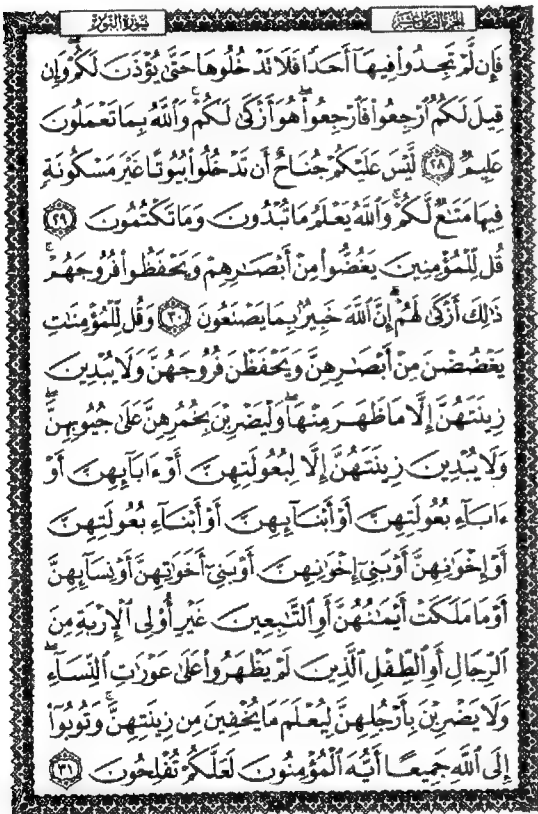 سورة النور
الجزء الثامن عشر
فَإِن لَّمْ تَجِدُوا۟ فِيهَآ أَحَدًا فَلَا تَدْخُلُوهَا حَتَّىٰ يُؤْذَنَ لَكُمْ ۖ وَإِن
قِيلَ لَكُمُ ٱرْجِعُوا۟ فَٱرْجِعُوا۟ ۖ هُوَ أَزْكَىٰ لَكُمْ ۚ وَٱللَّهُ بِمَا تَعْمَلُونَ
عَلِيمٌ ٢٨ لَّيْسَ عَلَيْكُمْ جُنَاحٌ أَن تَدْخُلُوا۟ بُيُوتًا غَيْرَ مَسْكُونَةٍ
فِيهَا مَتَـٰعٌ لَّكُمْ ۚ وَٱللَّهُ يَعْلَمُ مَا تُبْدُونَ وَمَا تَكْتُمُونَ ٢٩
قُل لِّلْمُؤْمِنِينَ يَغُضُّوا۟ مِنْ أَبْصَـٰرِهِمْ وَيَحْفَظُوا۟ فُرُوجَهُمْ ۚ
ذَٰلِكَ أَزْكَىٰ لَهُمْ ۗ إِنَّ ٱللَّهَ خَبِيرٌۢ بِمَا يَصْنَعُونَ ٣٠ وَقُل لِّلْمُؤْمِنَـٰتِ
يَغْضُضْنَ مِنْ أَبْصَـٰرِهِنَّ وَيَحْفَظْنَ فُرُوجَهُنَّ وَلَا يُبْدِينَ
زِينَتَهُنَّ إِلَّا مَا ظَهَرَ مِنْهَا ۖ وَلْيَضْرِبْنَ بِخُمُرِهِنَّ عَلَىٰ جُيُوبِهِنَّ ۖ
وَلَا يُبْدِينَ زِينَتَهُنَّ إِلَّا لِبُعُولَتِهِنَّ أَوْ ءَابَآئِهِنَّ أَوْ
ءَابَآءِ بُعُولَتِهِنَّ أَوْ أَبْنَآئِهِنَّ أَوْ أَبْنَآءِ بُعُولَتِهِنَّ
أَوْ إِخْوَٰنِهِنَّ أَوْ بَنِىٓ إِخْوَٰنِهِنَّ أَوْ بَنِىٓ أَخَوَٰتِهِنَّ أَوْ نِسَآئِهِنَّ
أَوْ مَا مَلَكَتْ أَيْمَـٰنُهُنَّ أَوِ ٱلتَّـٰبِعِينَ غَيْرِ أُو۟لِى ٱلْإِرْبَةِ مِنَ
ٱلرِّجَالِ أَوِ ٱلطِّفْلِ ٱلَّذِينَ لَمْ يَظْهَرُوا۟ عَلَىٰ عَوْرَٰتِ ٱلنِّسَآءِ ۖ
وَلَا يَضْرِبْنَ بِأَرْجُلِهِنَّ لِيُعْلَمَ مَا يُخْفِينَ مِن زِينَتِهِنَّ ۚ وَتُوبُوٓا۟
إِلَى ٱللَّهِ جَمِيعًا أَيُّهَ ٱلْمُؤْمِنُونَ لَعَلَّكُمْ تُفْلِحُونَ ٣١